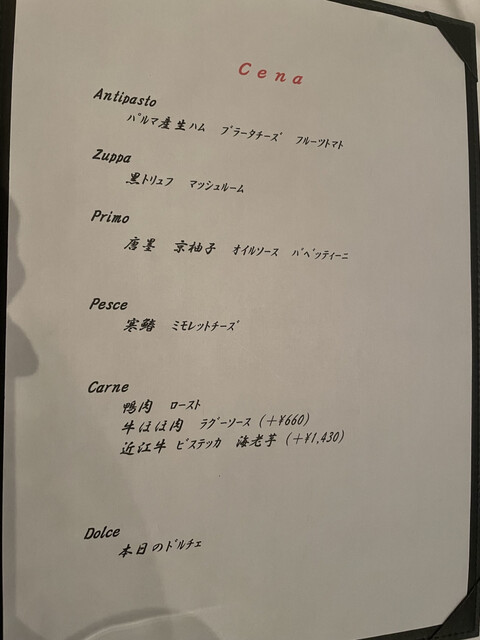 Cena
Antipasto
パルマ産生ハム ブラータチーズ フルーツトマト
Zuppa
黒トリュフ マッシュルーム
Primo
唐墨 京柚子 オイルソース バベッティーニ
Pesce
寒鰆 ミモレットチーズ
Carne
鴨肉 ロースト
牛ほほ肉 ラグーソース (+¥660)
近江牛 ビステッカ 海老芋 (+¥1,430)
Dolce
本日のドルチェ